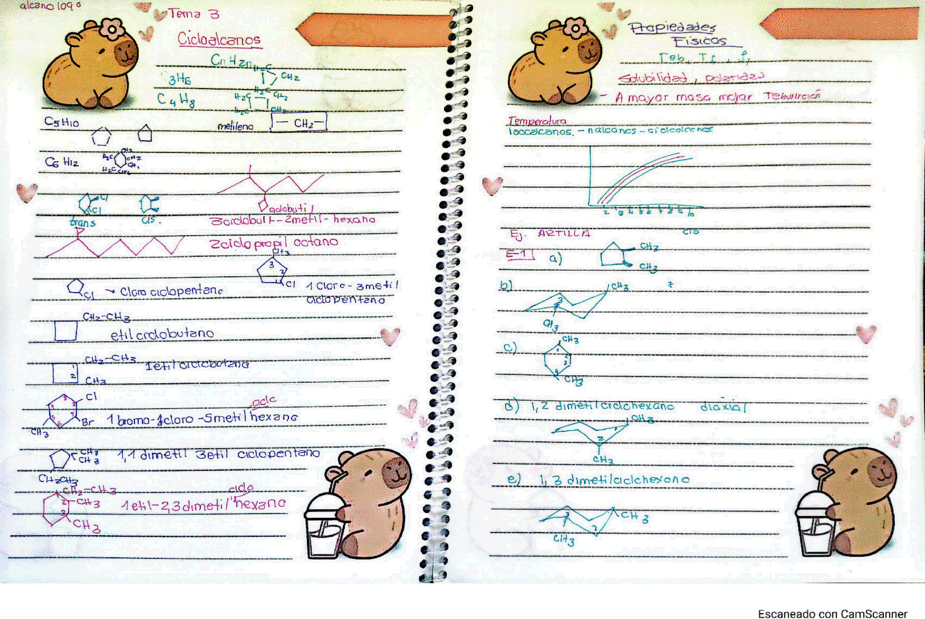 alcano 109°
Tema 3
Cicloalcanos
CnH2n
3H6
H2C
CH2
C4H8
H2C
CH2
H2C
C5H10
metileno
— CH2 —
C6H12
H2C
CH2
Cl
Cl
trans
cis.
3ciclobutil-2metil-hexano
2ciclopropil octano
CH3
3
2
Cl
Cl
Cloro ciclopentano
1 Cloro - 3metil
ciclopentano
CH2-CH3
etilciclobutano
CH2-CH3
1
2
CH3
Cl
Br
CH3
ciclo
1 bromo-
-5metil hexano
CH3
CH3
CH2CH3
1,1 dimetil 3etil ciclopentano
CH2-CH3
2
CH3
3
CH3
ciclo
1etil-2,3dimetil hexano
Propiedades
Físicas
Teb, Tf,
solubilidad, polaridad
- A mayor masa mayor
Temperatura
Isoalcanos. - nalcanos - cicloalcanos
Ej. ARTILLA
cis
E-1
a)
CH3
CH3
b)
CH3
3
CH3
c)
CH3
CH3
d) 1,2 dimetilciclohexano diaxial
CH3
2
CH3
e) 1,3 dimetilciclohexano
CH3
CH3
Escaneado con CamScanner